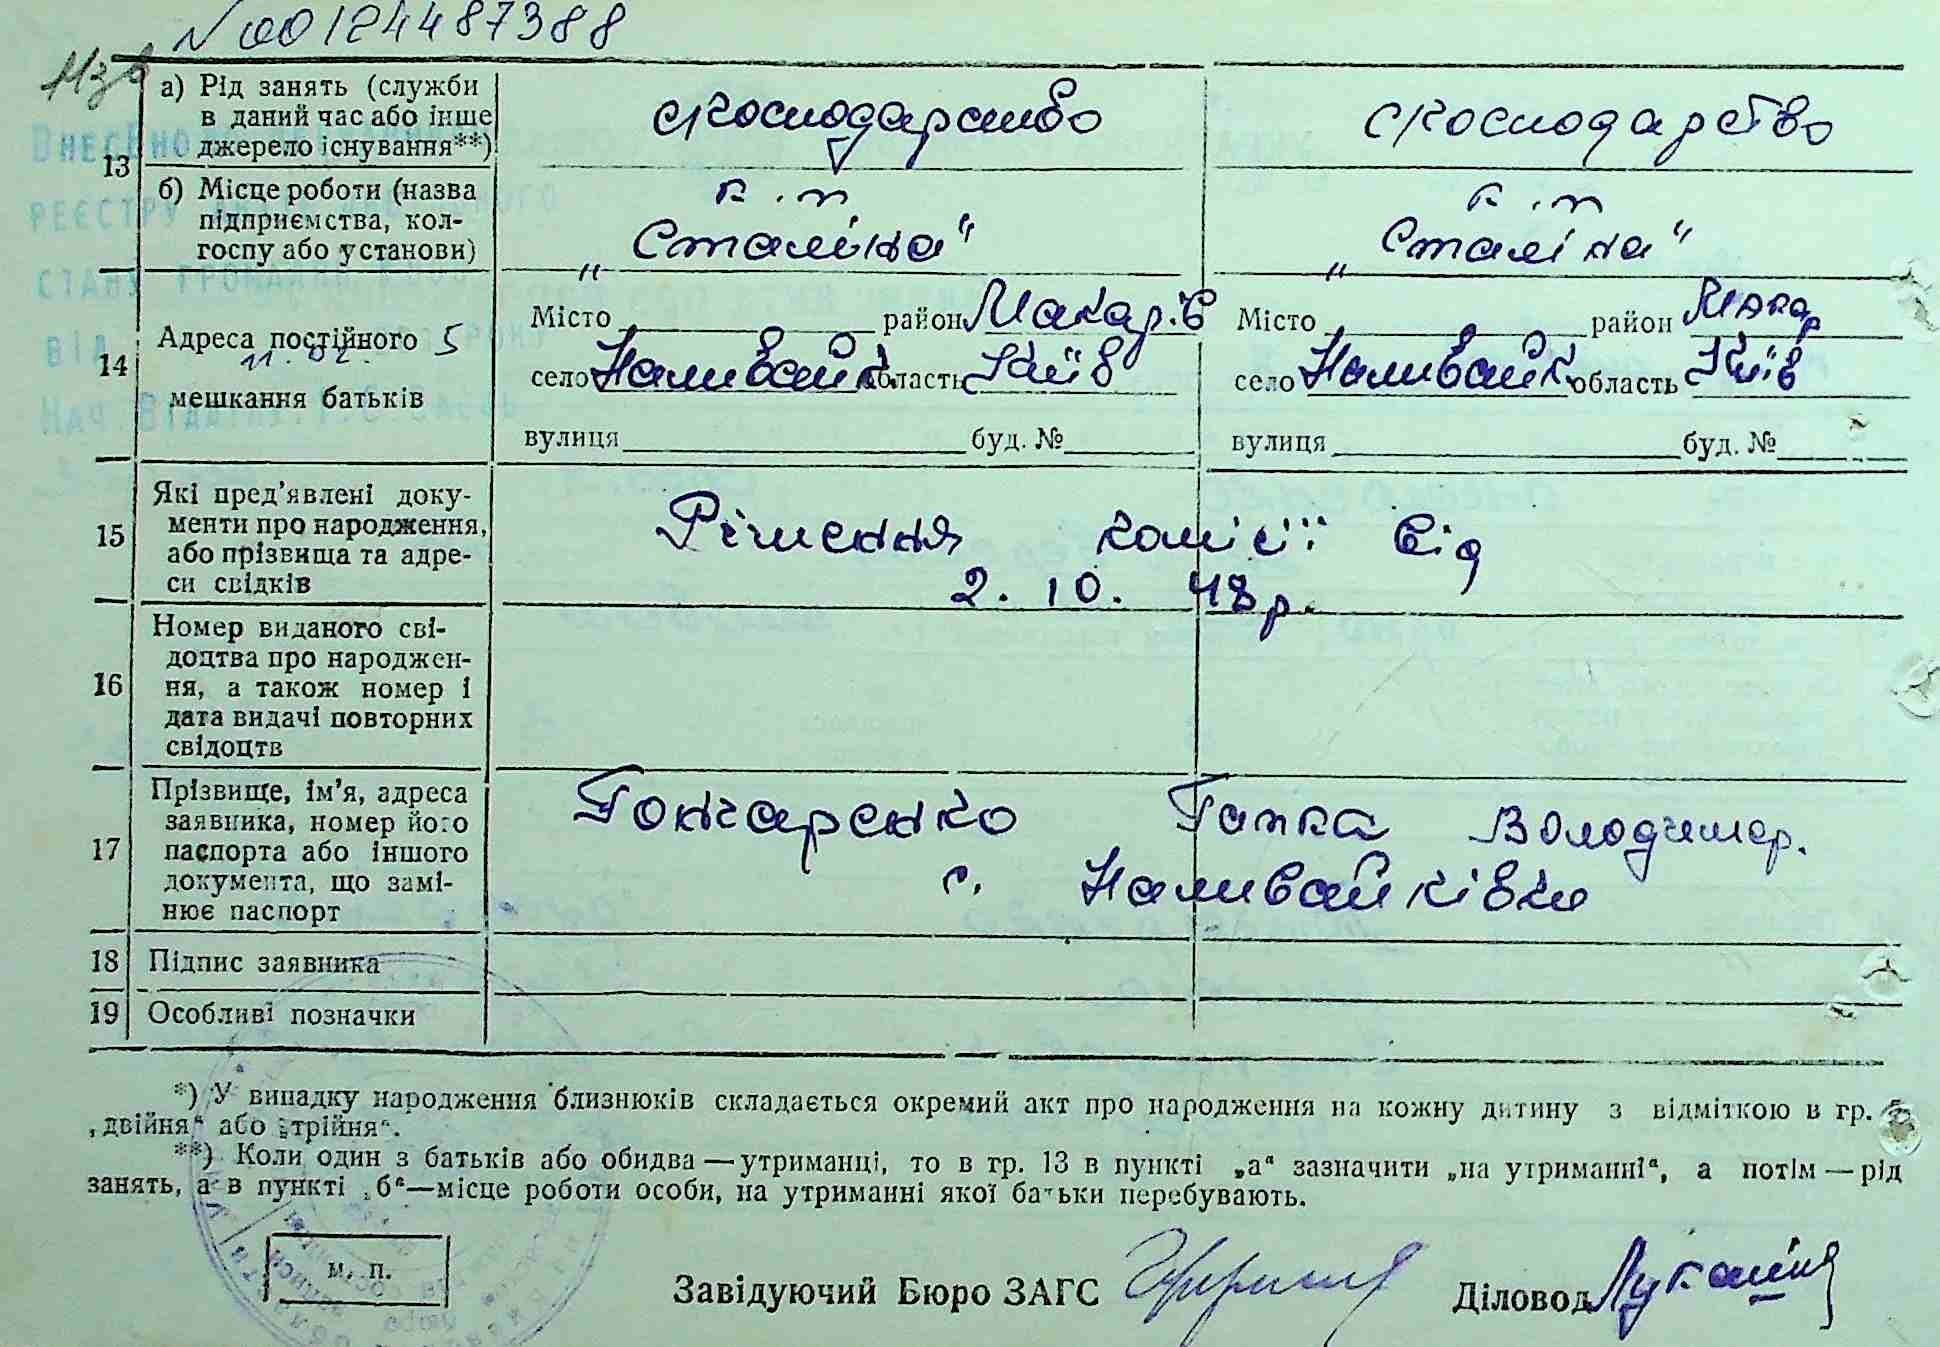 N 00124487388
13
а) Рід занять (служби
в даний час або інше
джерело існування**)
с господарство
с господарство
б) Місце роботи (назва
підприємства, кол-
госпу або установи)
к. п.
„Сталіна"
к. п
„Сталіна"
14
Адреса постійного
мешкання батьків
Місто район Макар. Київ
село Наливайк. область Київ
вулиця буд. №
Місто район Макар
село Наливайк область Київ
вулиця буд. №
15
Які пред’явлені доку-
менти про народження,
або прізвища та адре-
си свідків
Рішення комісії від
2. 10. 48 р.
16
Номер виданого сві-
доцтва про народжен-
ня, а також номер і
дата видачі повторних
свідоцтв
17
Прізвище, ім’я, адреса
заявника, номер його
паспорта або іншого
документа, що замі-
нює паспорт
Гончаренко Гапка Володимер.
с. Наливайківка
18 Підпис заявника
19 Особливі позначки
*) У випадку народження близнюків складається окремий акт про народження на кожну дитину з відміткою в гр. 5
„двійня“ або „трійня“.
**) Коли один з батьків або обидва — утриманці, то в гр. 13 в пункті „а“ зазначити „на утриманні“, а потім — рід
занять, а в пункті „б“ — місце роботи особи, на утриманні якої батьки перебувають.
м. п.
Завідуючий Бюро ЗАГС
Діловод